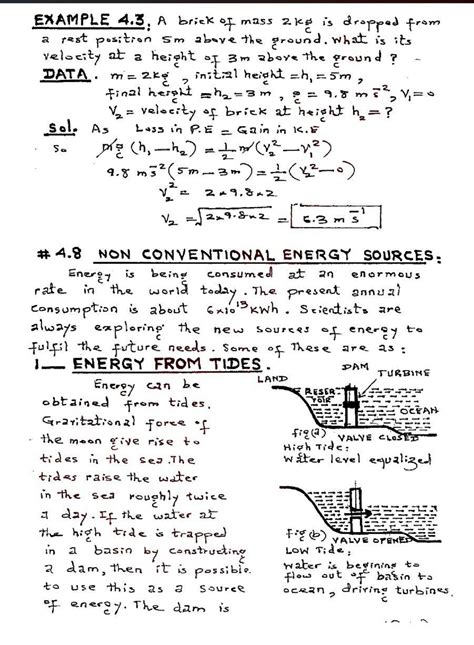 EXAMPLE 4.3: A brick of mass 2kg is dropped from
a rest position 5m above the ground. What is its
velocity at a height of 3m above the ground?
DATA. m = 2kg, initial height = h₁ = 5m,
final height = h₂ = 3m, g = 9.8 m s̄², V₁ = 0
V₂ = velocity of brick at height h₂ = ?
Sol. As Loss in P.E = Gain in K.E
So mg (h₁ — h₂) = 1/2 m (V₂² — V₁²)
9.8 m s̄² (5m — 3m) = 1/2 (V₂² — 0)
V₂² = 2×9.8×2
V₂ = √2×9.8×2 = 6.3 m s̄¹
# 4.8 NON CONVENTIONAL ENERGY SOURCES:
Energy is being consumed at an enormous
rate in the world today. The present annual
consumption is about 6×10¹³ KWh. Scientists are
always exploring the new sources of energy to
fulfil the future needs. Some of These are as:
1— ENERGY FROM TIDES.
Energy can be
obtained from tides.
Gravitational force of
the moon give rise to
tides in the sea. The
tides raise the water
in the sea roughly twice
a day. If the water at
the high tide is trapped
in a basin by constructing
a dam, then it is possible
to use this as a source
of energy. The dam is
LAND
DAM
TURBINE
RESER
VOIR
OCEAN
fig (a) VALVE CLOSED
High Tide:
Water level equalized
fig (b) VALVE OPENED
LOW Tide:
Water is begining to
flow out of basin to
ocean, driving turbines.